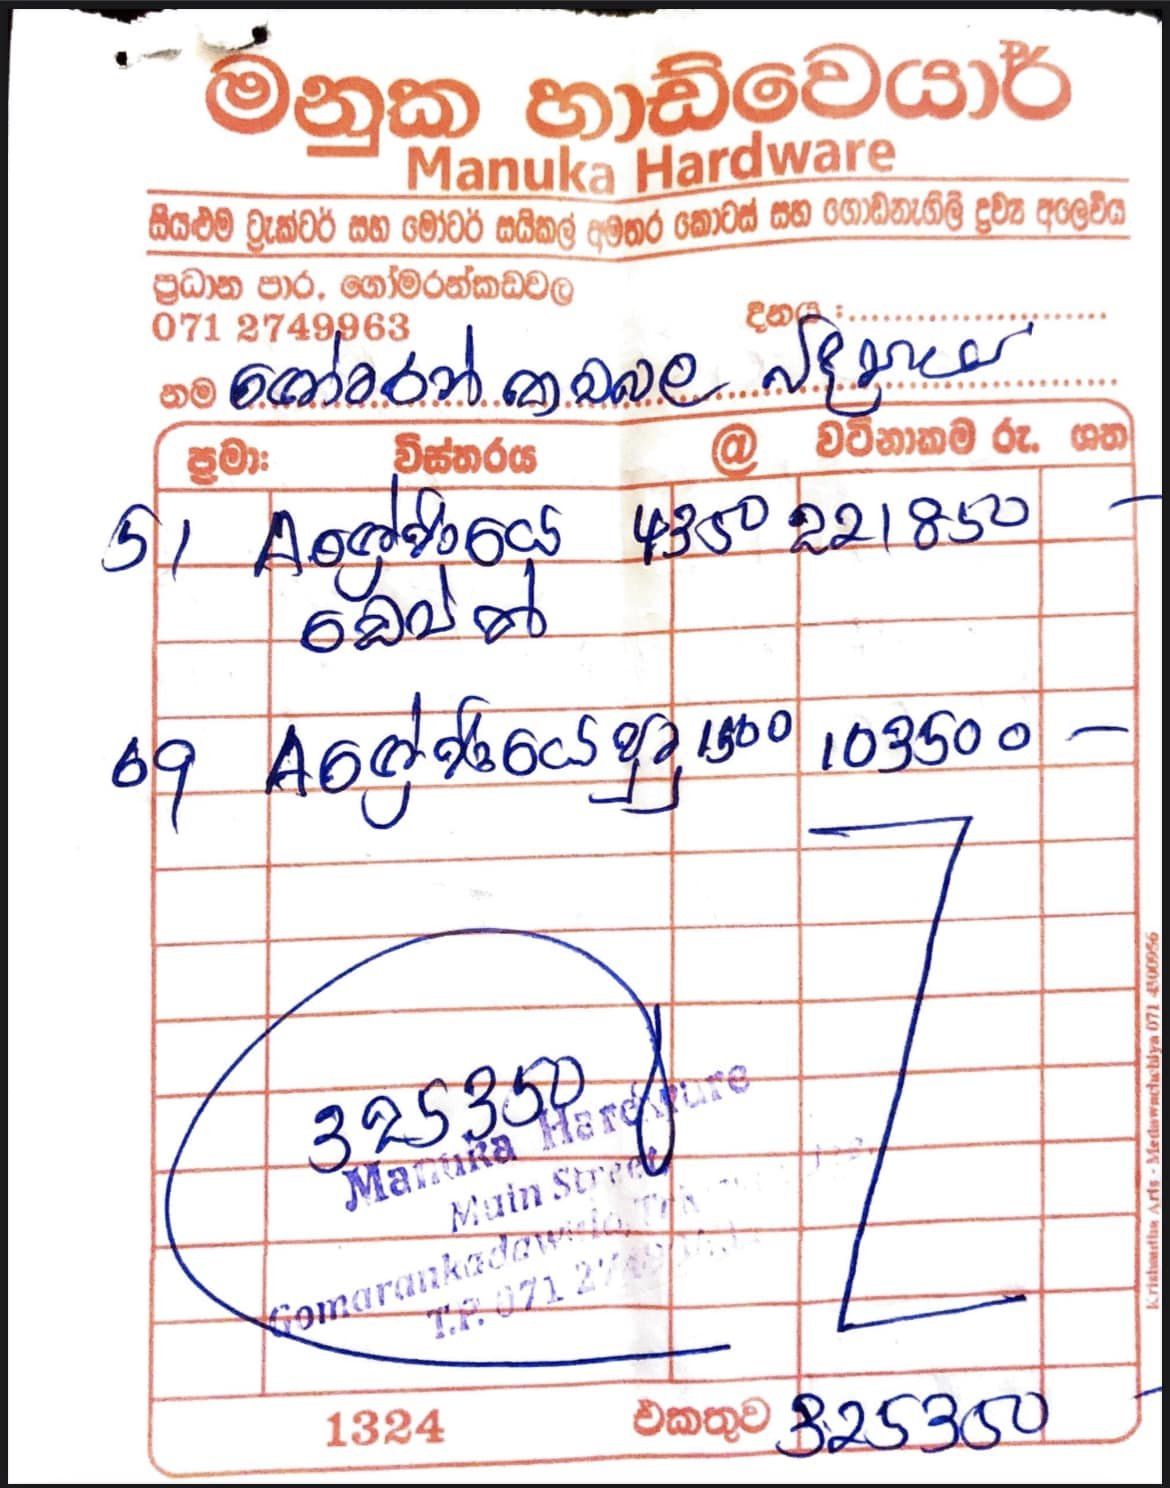 මනුක හාඩ්වෙයාර්
Manuka Hardware
සියළුම ට්‍රැක්ටර් සහ මෝටර් සයිකල් අමතර කොටස් සහ ගොඩනැගිලි ද්‍රව්‍ය අලෙවිය
ප්‍රධාන පාර, ගෝමරන්කඩවල
071 2749963
දිනය :
නම ගෝමරන් කඩවල
ප්‍රමා: විස්තරය @ වටිනාකම රු. ශත
51 A 4350 221850 -
69 A පුටු 1500 103500 -
325350
Manuka Hardware
Main Street
Gomarankadawala, Tri
T.P. 071 2749963
1324 එකතුව 325350 -
Krishantha Arts - Medawachchiya 071 4300956